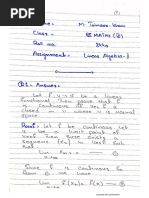 Name:- M Tehmoor Khan
Class :- BS MATHS (8)
Roll no. :-
Assignment :- Linear Algebra-II
Q#1 - Answer:-
Let f: v → F be a linear
functional then prove that f
is continuous iff ker f is
closed in v where v is normed
space.
Proof:- let f be continous Let
x be a limit point of
then we have a
sequence {xn} in such
that
Lim Xn = x
n→∞
Since f is continuous So
then we have
Lim f(xn) = f(x) → ②